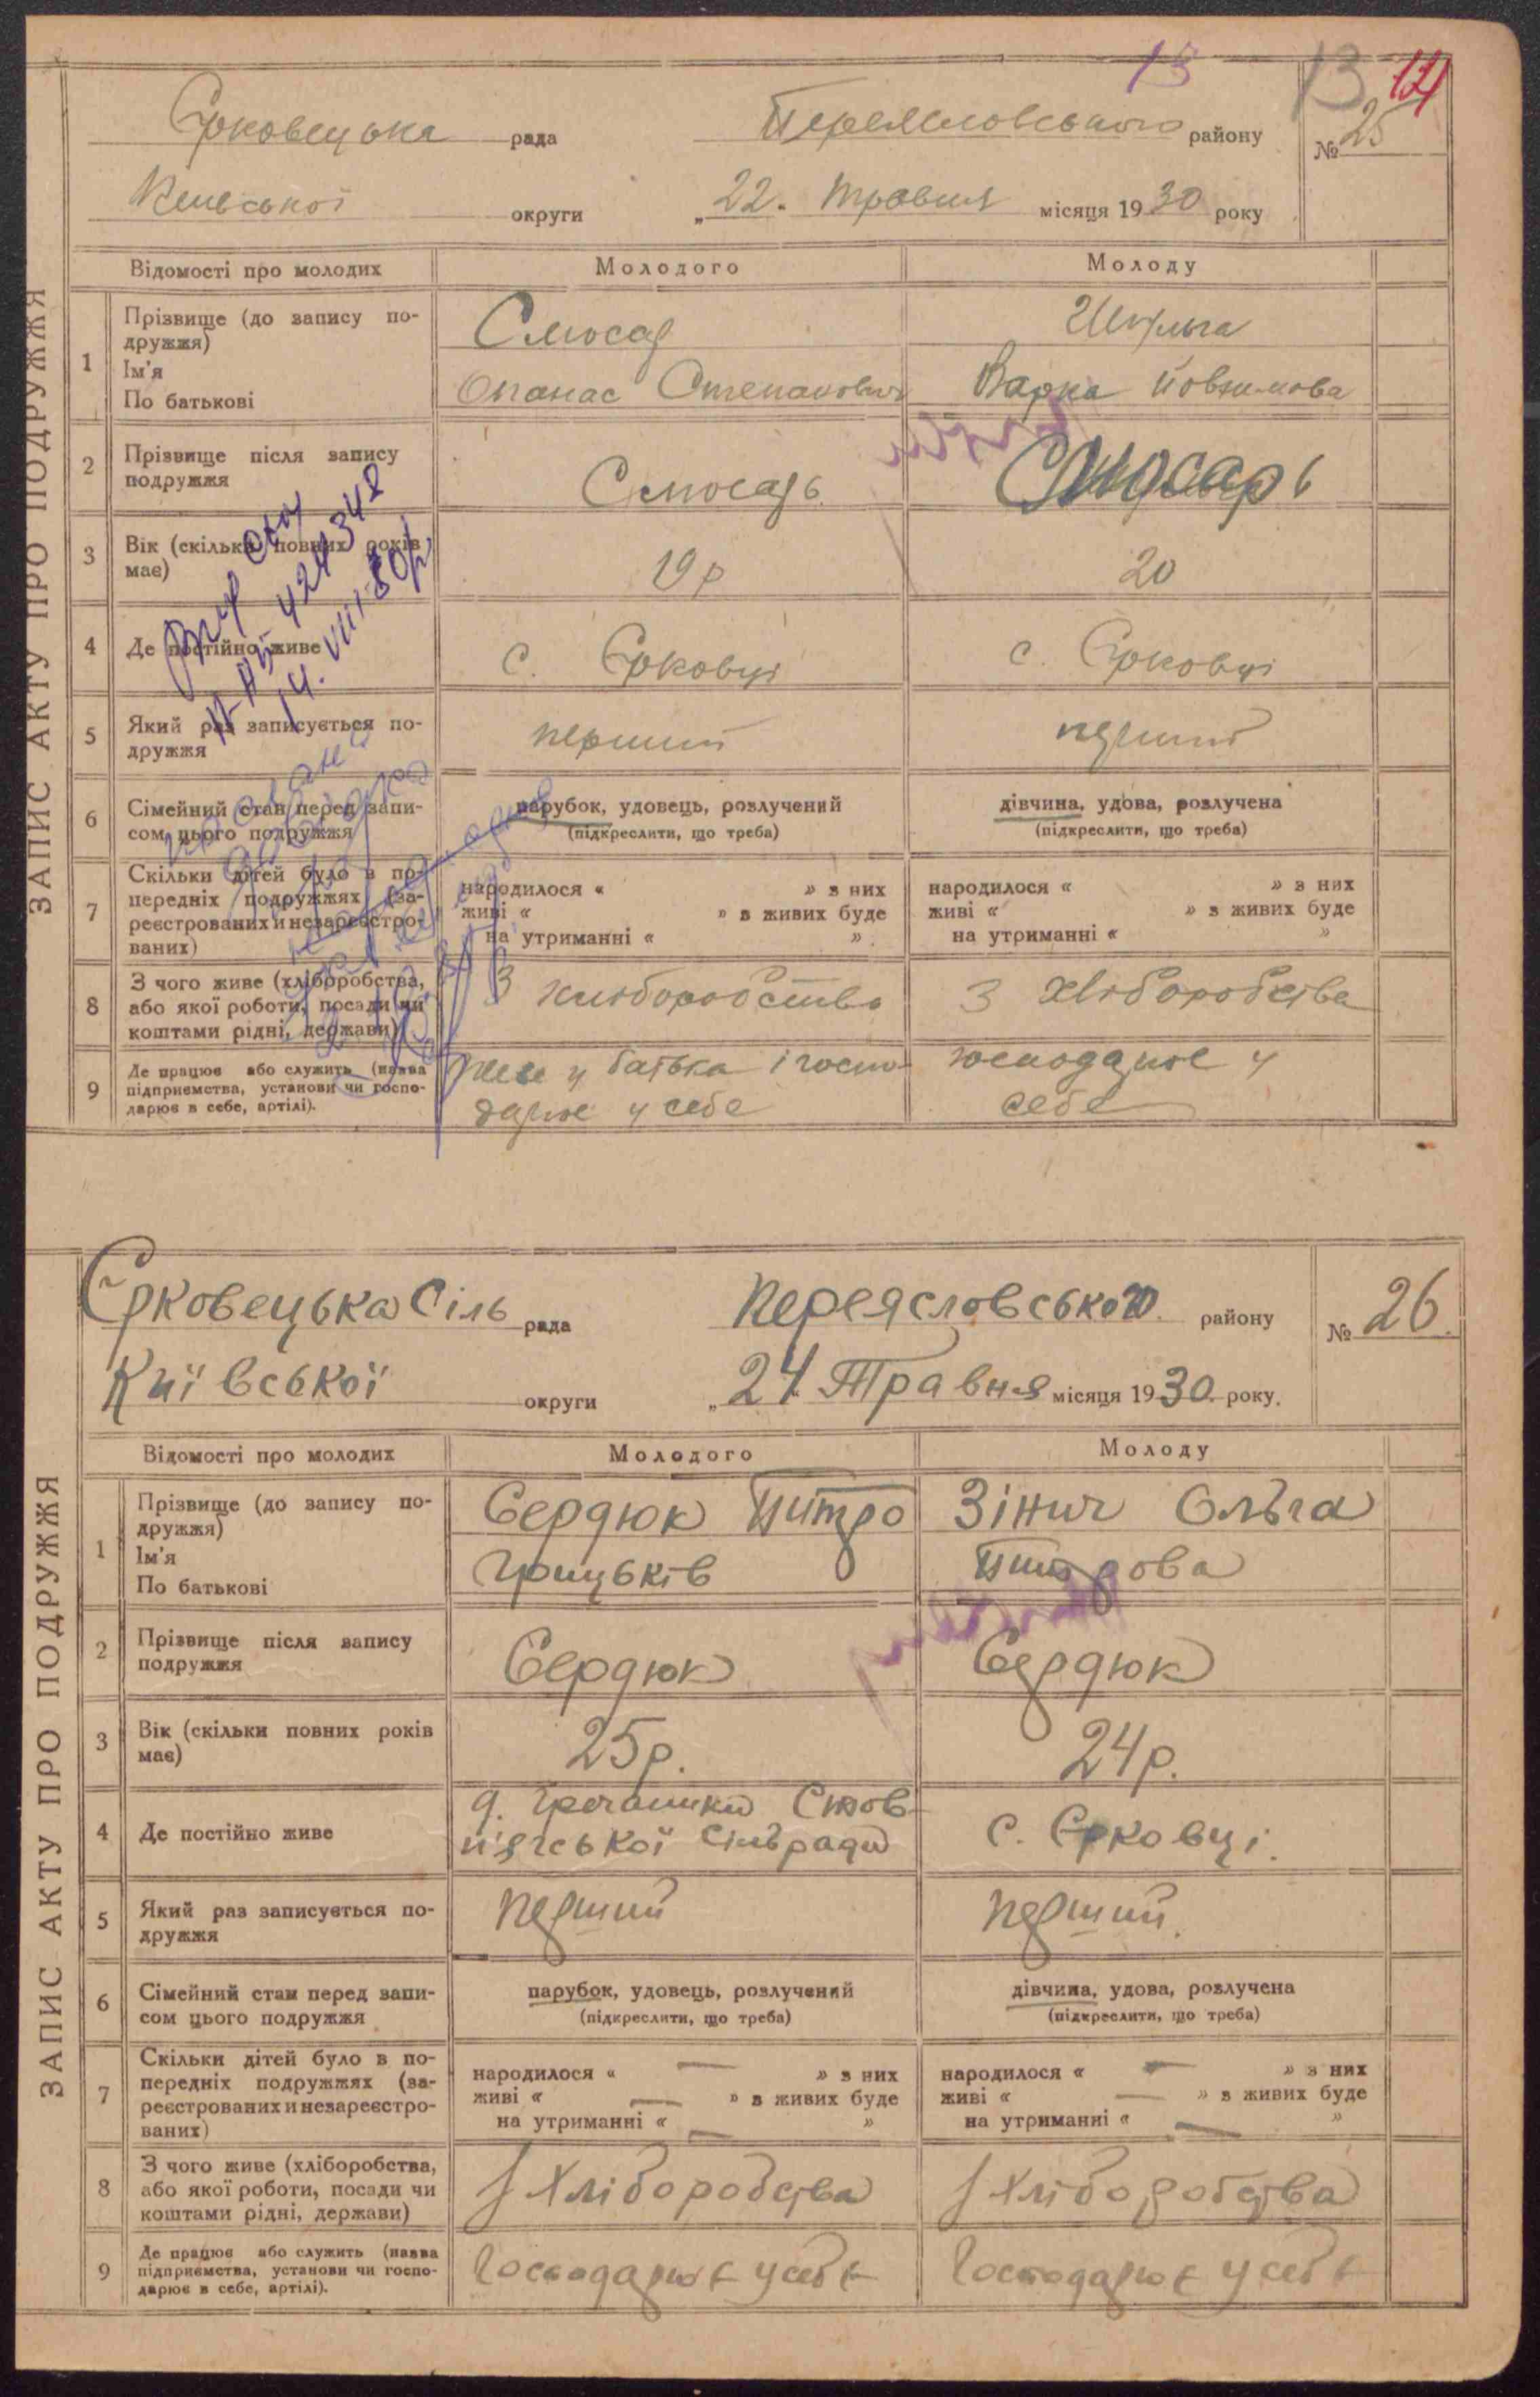 13 13 14
Єрковецька рада Переяславського району № 25
Київської округи „22. травня місяця 1930 року
ЗАПИС АКТУ ПРО ПОДРУЖЖЯ
Відомості про молодих Молодого Молоду
1 Прізвище (до запису подружжя) Слюсар
Ім'я
По батькові Опанас Степанович Варка Йовхимова
2 Прізвище після запису подружжя Слюсарь Слюсарь
3 Вік (скільки повних років має) 19 р 20
4 Де постійно живе с. Єрковці с. Єрковці
5 Який раз записується подружжя перший перший
6 Сімейний стан перед записом цього подружжя парубок, удовець, розлучений дівчина, удова, розлучена
(підкреслити, що треба) (підкреслити, що треба)
7 Скільки дітей було в попередніх подружжях (зареєстрованих и незареєстрованих) народилося « » з них народилося « » з них
живі « » з живих буде живі « » з живих буде
на утриманні « » на утриманні « »
8 З чого живе (хліборобства, або якої роботи, посади чи коштами рідні, держави) З хліборобства З хліборобства
9 Де працює або служить (назва підприємства, установи чи господарює в себе, артілі). живе у батька і господарює у себе господарює у себе
424348
14. VIII-80р.
Єрковецька Сіль рада Переясловського району № 26
Київської округи „24 Травня місяця 1930 року.
ЗАПИС АКТУ ПРО ПОДРУЖЖЯ
Відомості про молодих Молодого Молоду
1 Прізвище (до запису подружжя) Сердюк Питро Зінич Ольга
Ім'я
По батькові Грицьків
2 Прізвище після запису подружжя Сердюк Сердюк
3 Вік (скільки повних років має) 25р. 24р.
4 Де постійно живе Сільради с. Єрковці.
5 Який раз записується подружжя перший перший.
6 Сімейний стан перед записом цього подружжя парубок, удовець, розлучений дівчина, удова, розлучена
(підкреслити, що треба) (підкреслити, що треба)
7 Скільки дітей було в попередніх подружжях (зареєстрованих и незареєстрованих) народилося « — » з них народилося « — » з них
живі « — » з живих буде живі « — » з живих буде
на утриманні « — » на утриманні « — »
8 З чого живе (хліборобства, або якої роботи, посади чи коштами рідні, держави) Хліборобства Хліборобства
9 Де працює або служить (назва підприємства, установи чи господарює в себе, артілі). Господарює у себе Господарює у себе